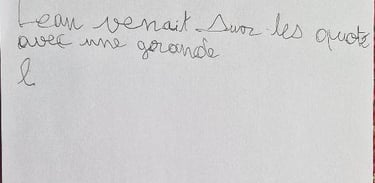 Lean venait Suoz les quoté
avec une gorande
l